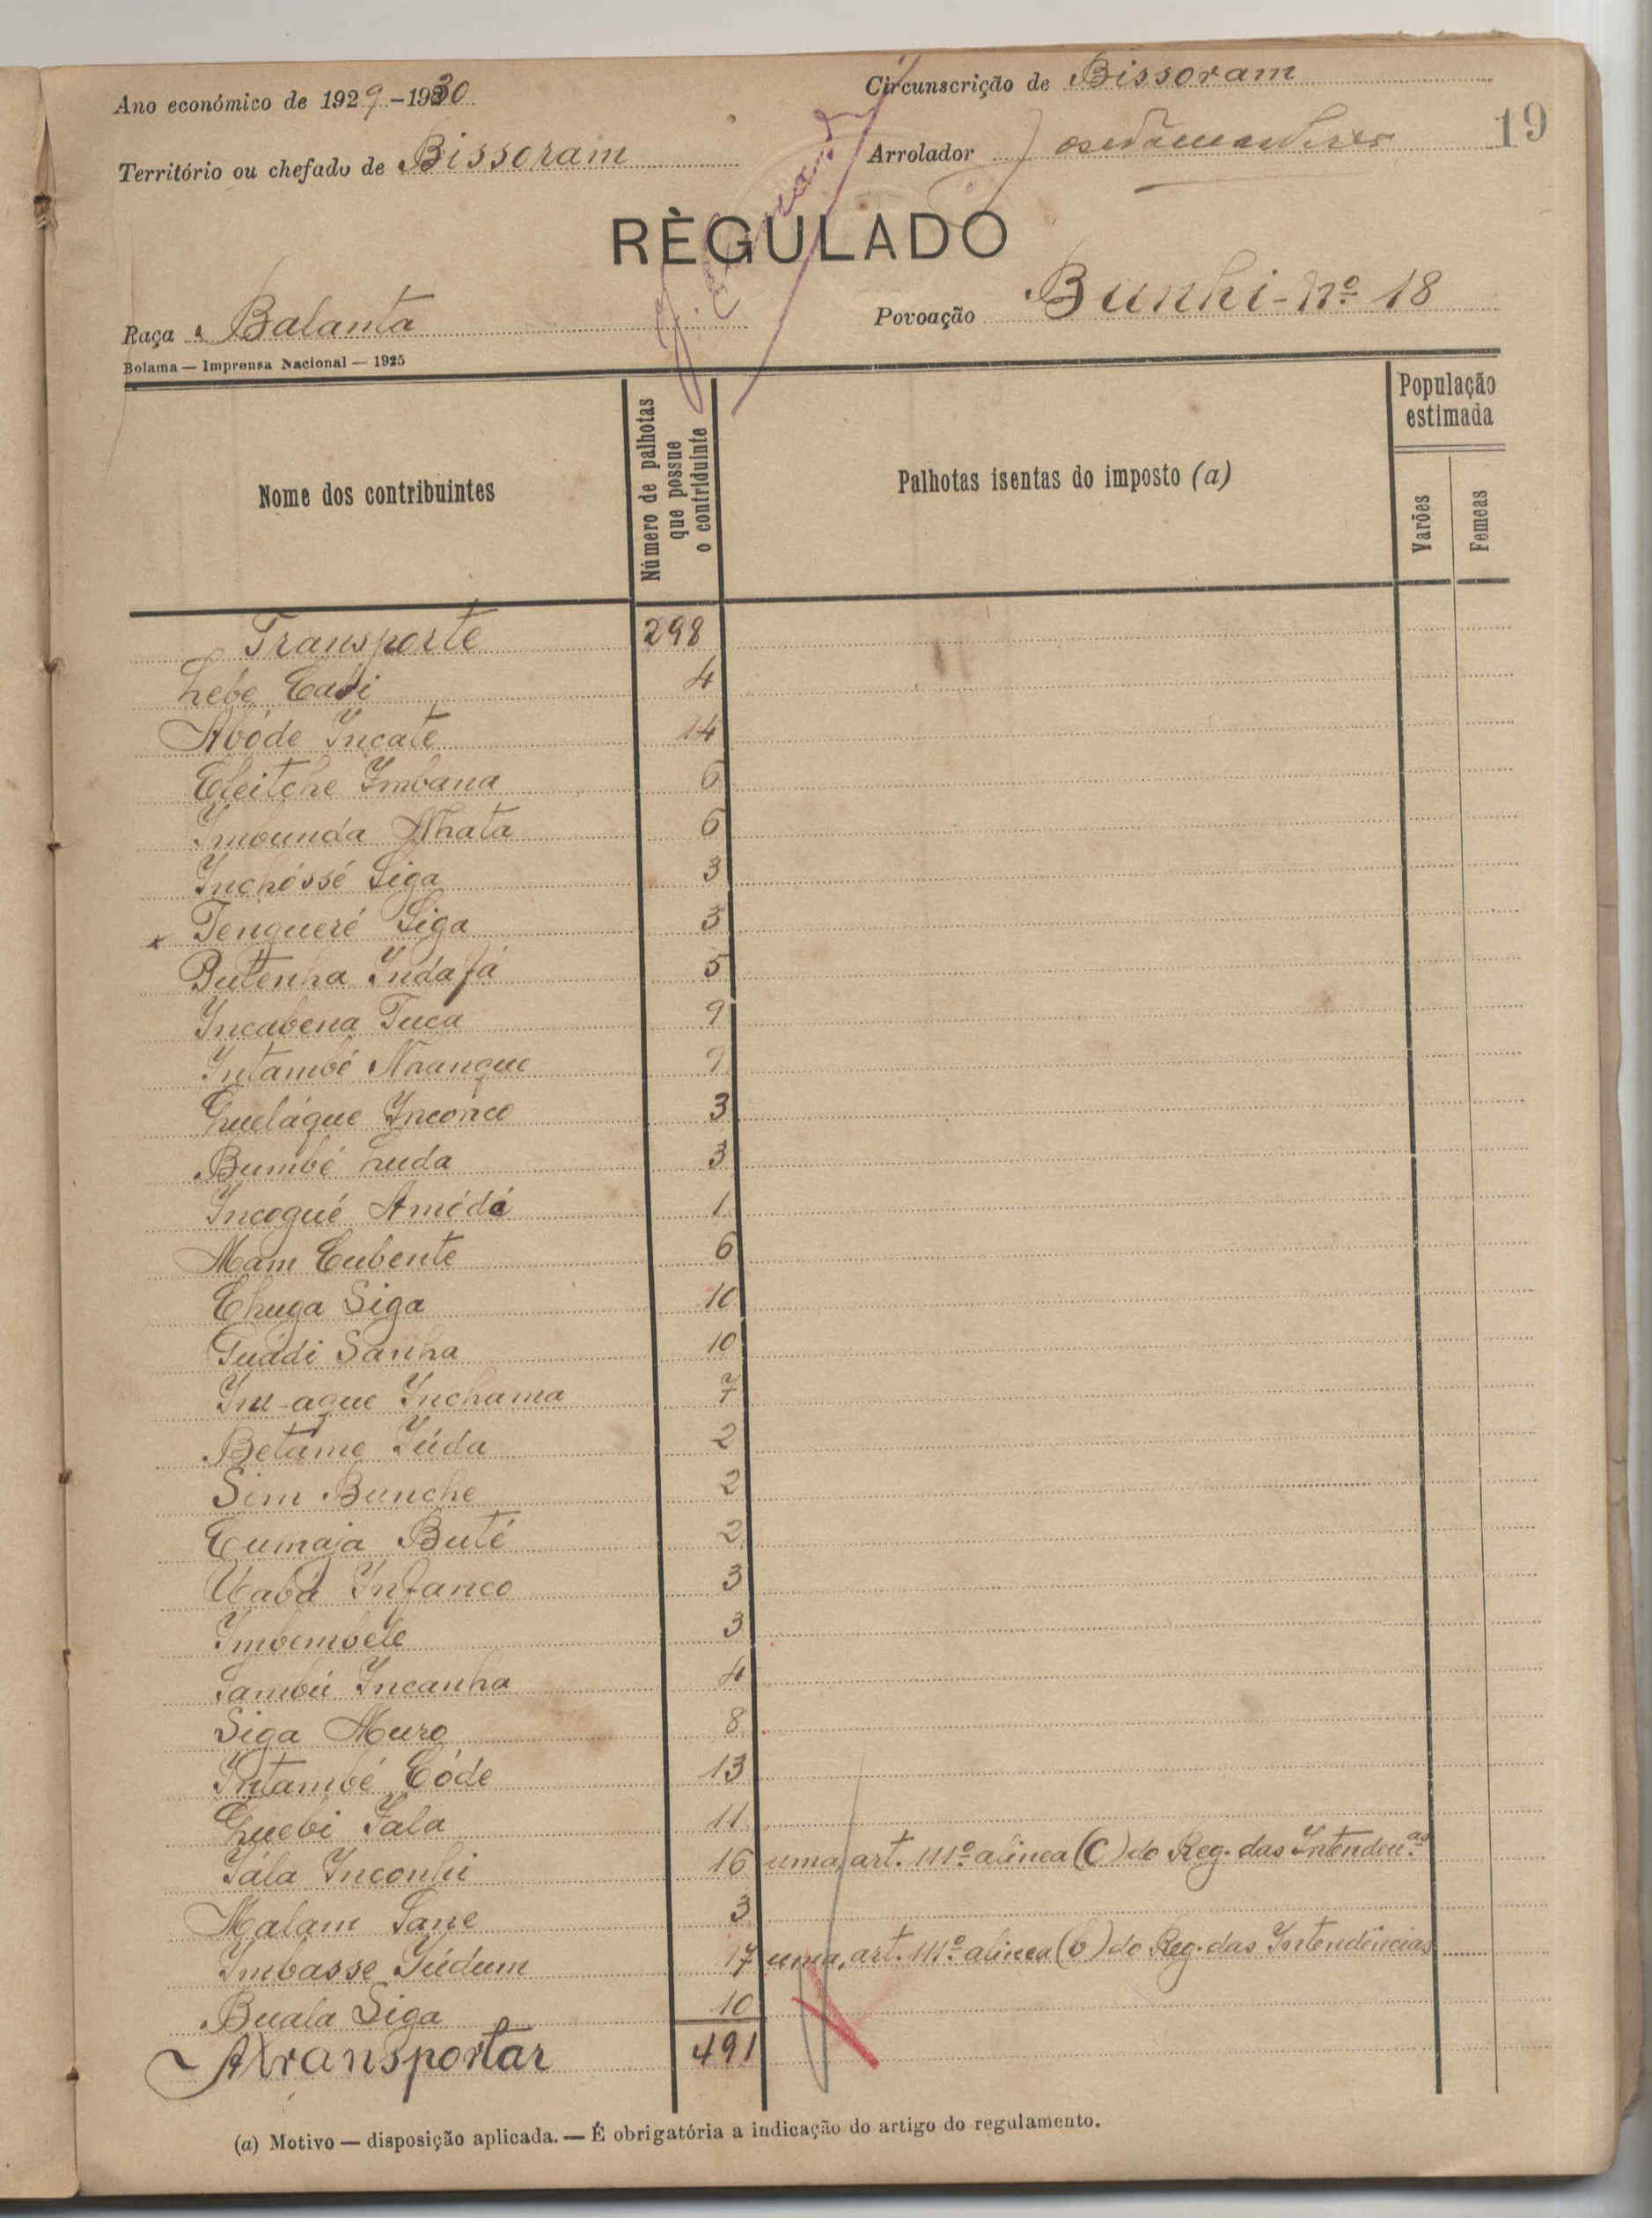 Ano económico de 1929-1930
Circunscrição de Bissoram
19
Território ou chefado de Bissoram
Arrolador
RÈGULADO
Raça Balanta
Povoação Bunhi-nº 18
Bolama — Imprensa Nacional — 1925
Nome dos contribuintes
Número de palhotas que possue o contriduinte
Palhotas isentas do imposto (a)
População estimada
Varões
Femeas
Transporte 298
Lebe Cadi 4
Abóde Incate 14
Cleitche Imbana 6
Imbunda Nhata 6
Inchóssé Siga 3
x Tengueré Siga 3
Butenha Indafá 5
Incabena Tuca 9
Intambé Nhangue 9
Guelágue Inconco 3
Bumbé Luda 3
Incogué Amédá 1
Mam Cubente 6
Chuga Siga 10
Guádi Sanha 10
Im-ague Inchama 7
Betame Iúda 2
Sim Bunche 2
Cumaja Buté 2
Uabá Infanco 3
Imbembele 3
Sambú Incanha 4
Siga Muro 8
Intambé Códe 13
Guebi Fala 11
Iála Inconhi 16 uma, art. 111º alinea (C) do Reg. das Intenden.as
Malam Sane 3
Imbasse Iúdum 17 uma, art. 111º alinea (b) do Reg. das Intendências
Buala Siga 10
A transportar 491
(a) Motivo — disposição aplicada. — É obrigatória a indicação do artigo do regulamento.